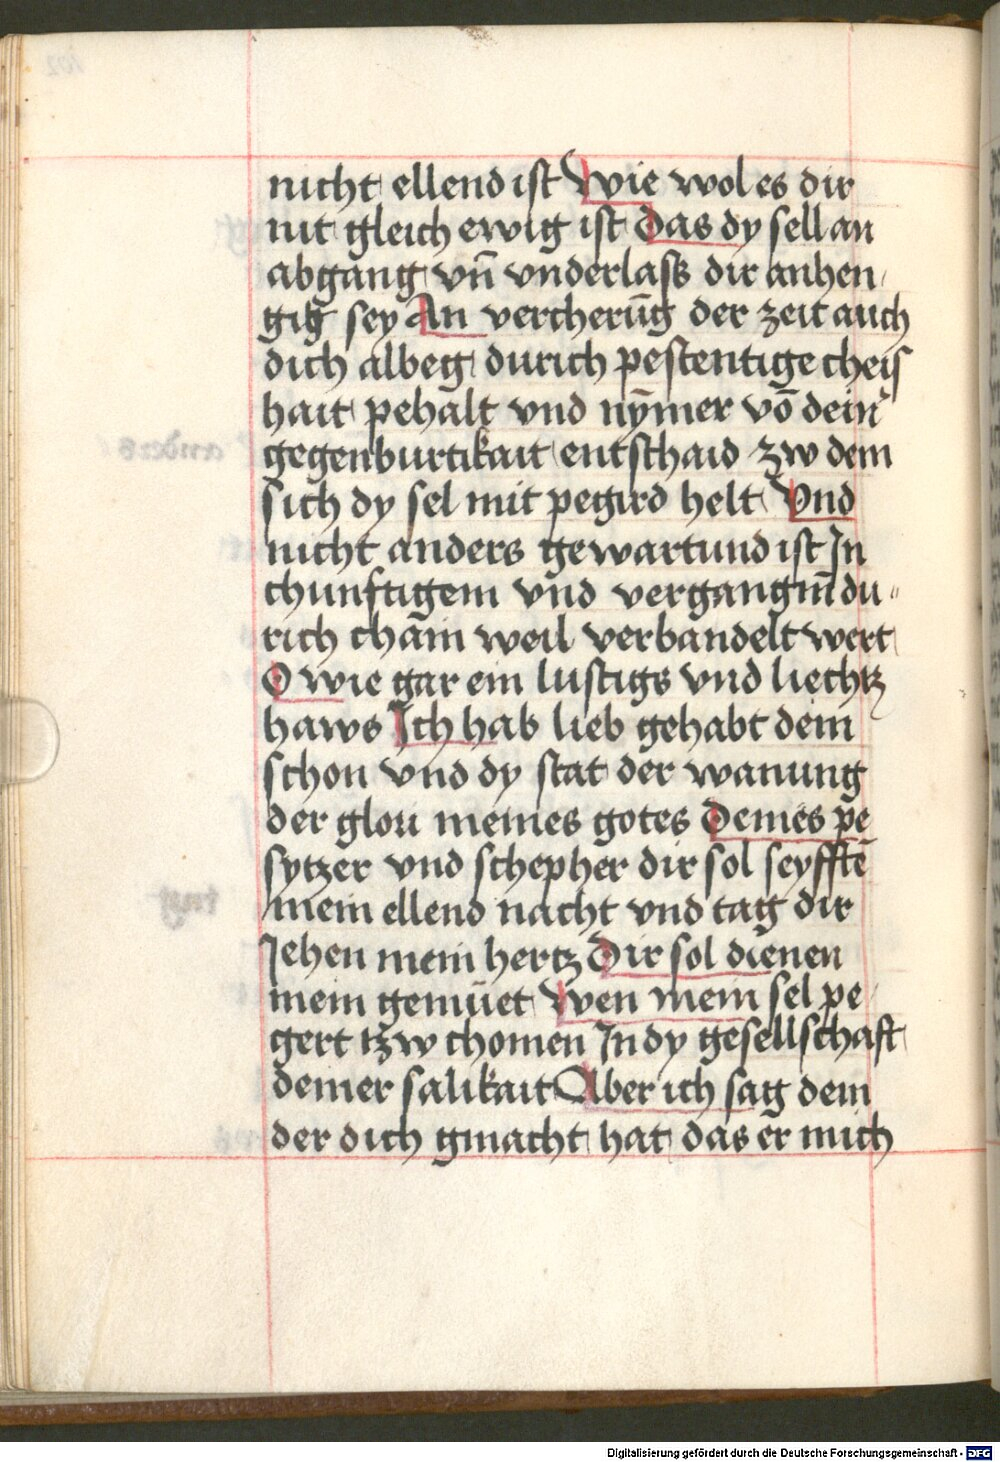 nicht ellend ist Wie wol es dir
nit gleich ewig ist Das dy sell an
abgang vn̄ vnderlass dir anhen
gig sey An vercherūg der zeit auch
dich albeg durich pestentige cheis
hait pehalt vnd nȳmer vō dein
gegenburtikait entschaid zw dem
sich dy sel mit pegird helt Vnd
nicht anders gewartund ist In
chunftigem vnd vergangm̄ du〃
rich chain weil verbandelt wert
O wie gar ein lustigs vnd liechtz
haws Ich hab lieb gehabt dein
schon vnd dy stat der wanung
der glori meines gotes Deines pe
sytzer vnd schepher dir sol seyfftē
mein ellend nacht vnd tag dir
Jehen mein hertz Dir sol dienen
mein gemuet Wen mein sel pe
gert tzw chomen In dy gesellschaft
deiner salikait Aber ich sag dem
der dich gmacht hat das er mich
Digitalisierung gefördert durch die Deutsche Forschungsgemeinschaft - DFG